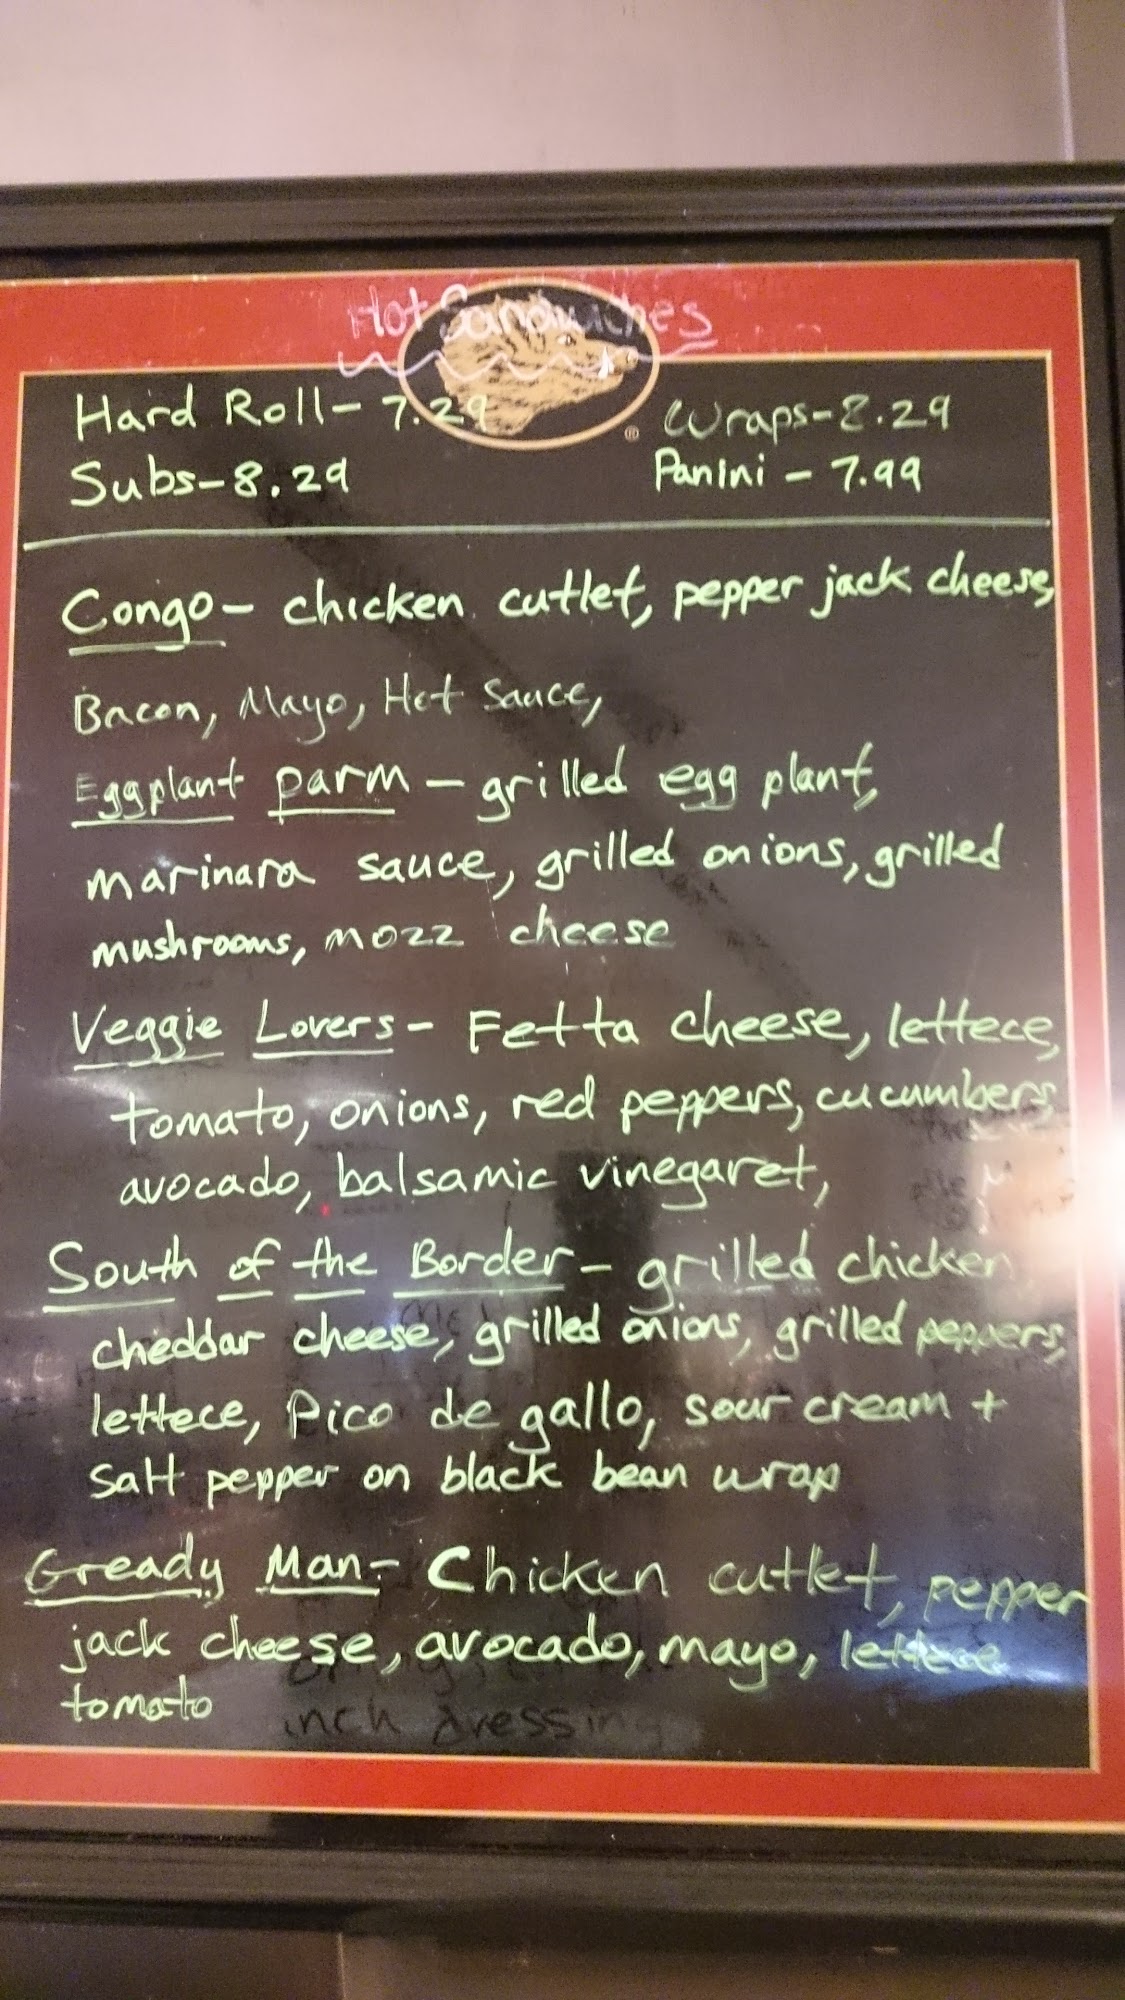 Hot Sandwiches
Hard Roll- 7.29
Wraps-8.29
Subs-8.29
Panini - 7.99
Congo- chicken cutlet, pepper jack cheese,
Bacon, Mayo, Hot Sauce,
Eggplant parm - grilled egg plant,
marinara sauce, grilled onions, grilled
mushrooms, mozz cheese
Veggie Lovers- Fetta cheese, lettece,
tomato, onions, red peppers, cucumbers,
avocado, balsamic vinegaret,
South of the Border- grilled chicken,
cheddar cheese, grilled onions, grilled peppers,
lettece, Pico de gallo, sour cream +
Salt pepper on black bean wrap
Gready Man- Chicken cutlet, pepper
jack cheese, avocado, mayo, lettece
tomato
inch dressing